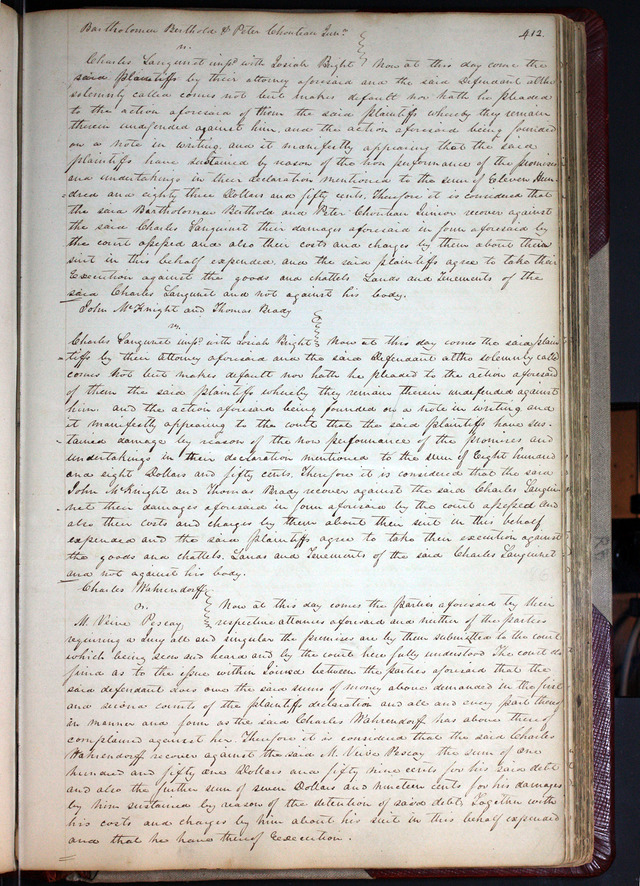 Bartholomew Berthold & Peter Choutian Junr
412.
vs.
Charles Sanguinet impd with Josiah Bright Now at this day come the
said Plaintiffs by their attorney aforesaid and the said Defendant altho
solemnly called comes not but makes default nor hath he pleaded
to the action aforesaid of them the said plaintiffs whereby they remain
therein undefended against him, and the action aforesaid being founded
on a note in writing and it manifestly appearing that the said
plaintiffs have sustained by reason of the non performance of the promises
and undertakings in their declaration mentioned to the sum of Eleven Hun-
dred and eighty three Dollars and fifty cents. Therefore it is considered that
the said Bartholomew Berthold and Peter Choutian Junior recover against
the said Charles Sanguinet their damages aforesaid in form aforesaid by
the court assessed and also their costs and charges by them about their
suit in this behalf expended, and the said plaintiffs agree to take their
Execution against the goods and chattels Lands and Tenements of the
said Charles Sanguinet and not against his body.
John McKnight and Thomas Brady
vs.
Charles Sanguinet impd with Josiah Bright Now at this day comes the said plain
tiffs by their attorney aforesaid and the said Defendant altho solemnly calld
comes not but makes default nor hath he pleaded to the action aforesaid
of them the said plaintiffs whereby they remain therein undefended against
him. and the action aforesaid being founded on a note in writing and
it manifestly appearing to the court that the said plaintiffs have sus-
tained damage by reason of the non performance of the promises and
undertakings in their declaration mentioned to the sum of Eight hundred
and eight Dollars and fifty cents. Therefore it is considered that the said
John McKnight and Thomas Brady recover against the said Charles Sanguin
net their damages aforesaid in form aforesaid by the court assessed and
also their costs and charges by them about their suit in this behalf
expended and the said plaintiffs agree to take their execution against
the goods and chattels. Lands and Tenements of the said Charles Sanguinet
and not against his body.
Charles Wahrendorff
vs.
Now at this day comes the Parties aforesaid by their
M. Vieve Pescay respective attornies aforesaid and neither of the parties
requiring a Jury all and singular the premises are by them submitted to the court
which being seen and heard and by the court here fully understood The court do
find as to the issue within Joined between the parties aforesaid that the
said defendant does owe the said sums of money above demanded in the first
and second counts of the plaintiffs declaration and all and every part thereof
in manner and form as the said Charles Wahrendorff has above thereof
complained against her. Therefore it is considered that the said Charles
Wahrendorff recover against the said M. Vieve Pescay the sum of one
hundred and fifty one Dollars and fifty nine cents for his said debt
and also the further sum of seven Dollars and nineteen cents for his damages
by him sustained by reason of the detention of said debt. Together with
his costs and charges by him about his suit in this behalf expended
and that he have thereof Execution.